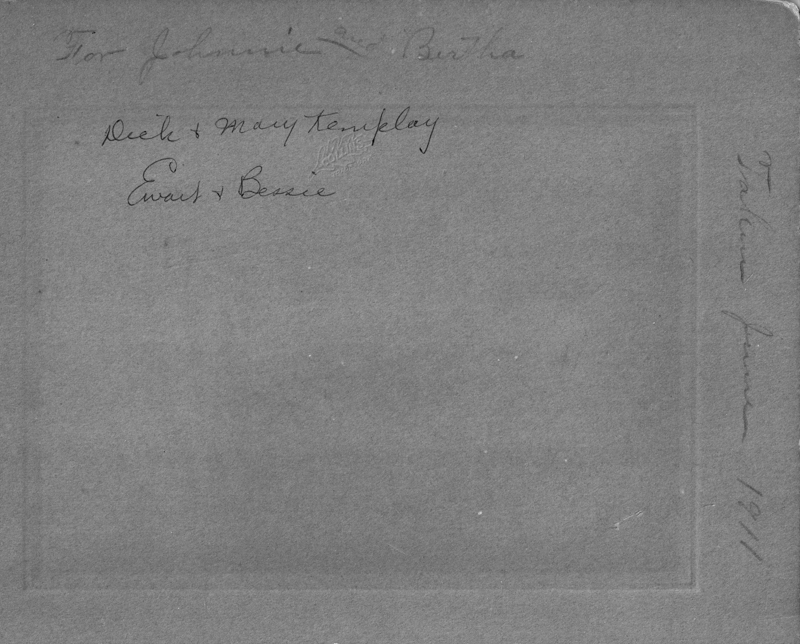 For Johnnie and Bertha
Dick & Mary Templay
Ewart & Bessie
Taken June 1911